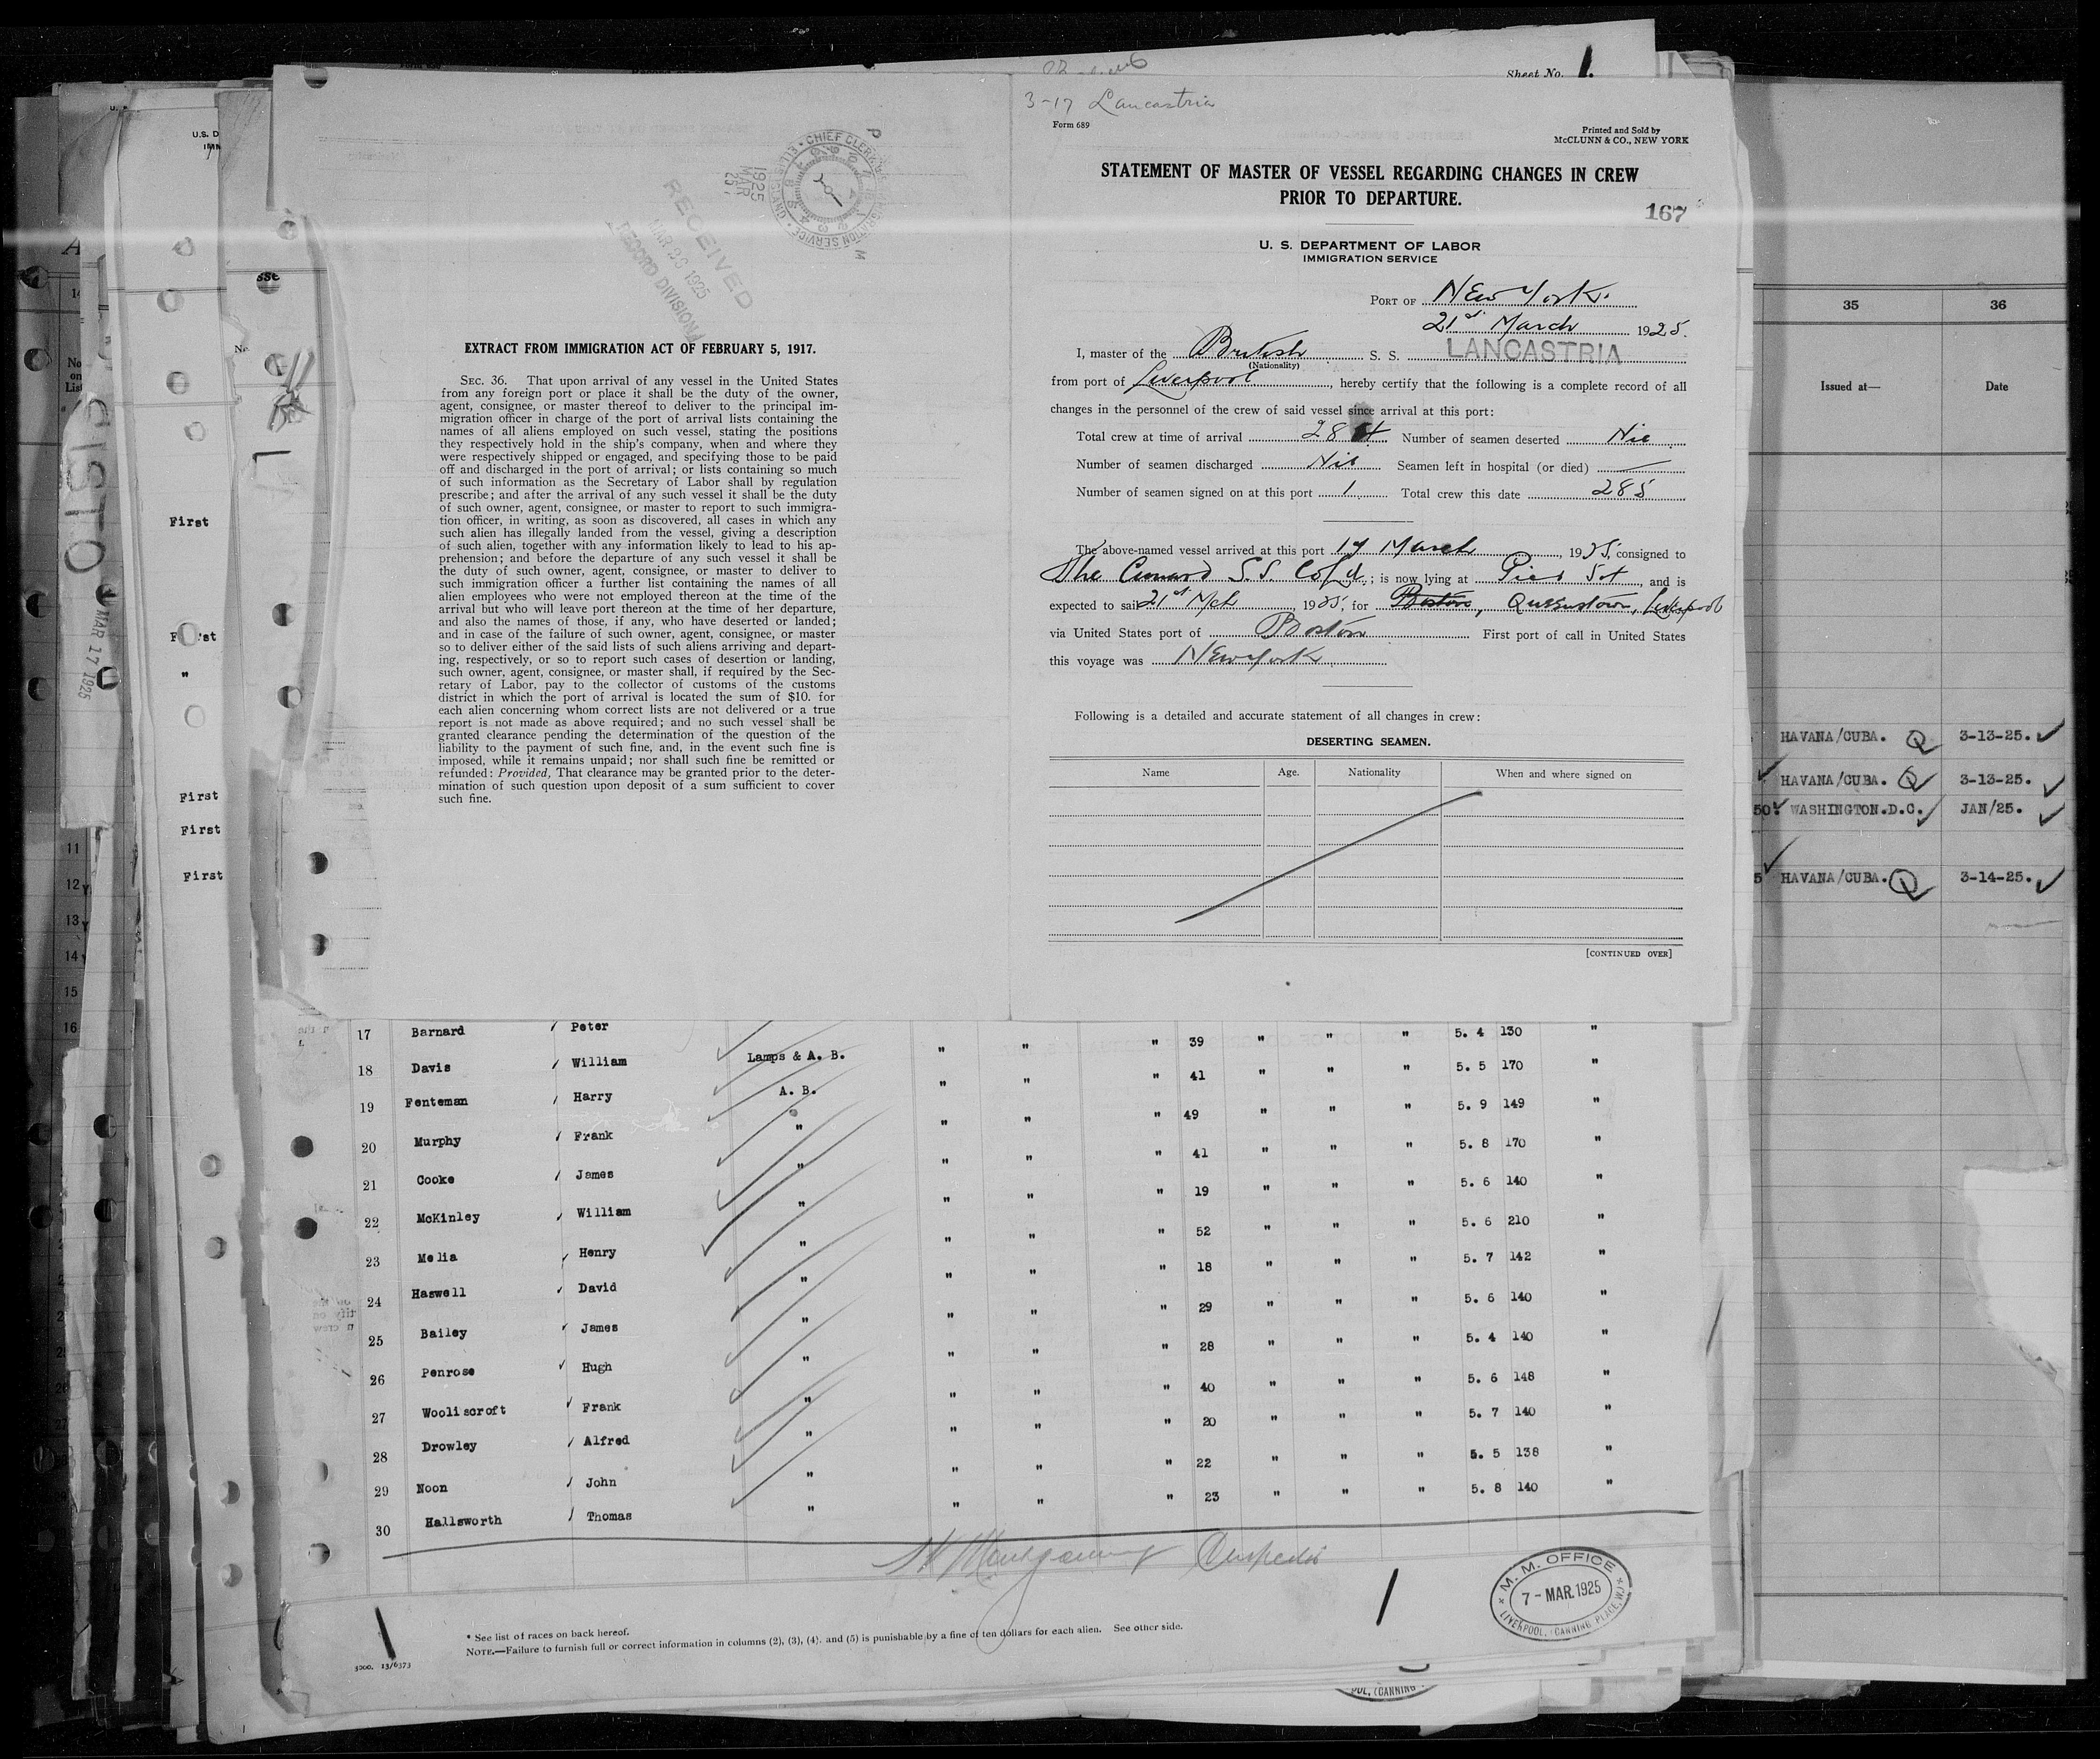 Sheet No. 1.
3-17 Lancastria
Form 689
Printed and Sold by
McCLUNN & CO., NEW YORK
STATEMENT OF MASTER OF VESSEL REGARDING CHANGES IN CREW
PRIOR TO DEPARTURE.
167
U. S. DEPARTMENT OF LABOR
IMMIGRATION SERVICE
PORT OF New York.
21st March 1925.
I, master of the British S. S. LANCASTRIA
(Nationality)
from port of Liverpool, hereby certify that the following is a complete record of all
changes in the personnel of the crew of said vessel since arrival at this port:
Total crew at time of arrival 284 Number of seamen deserted Nil
Number of seamen discharged Nil Seamen left in hospital (or died) —
Number of seamen signed on at this port 1 Total crew this date 285
The above-named vessel arrived at this port 17 March, 1925, consigned to
The Cunard S.S. Co Ld.; is now lying at Pier 54, and is
expected to sail 21st Mch, 1925, for Boston, Queenstown, Liverpool
via United States port of Boston First port of call in United States
this voyage was New York
Following is a detailed and accurate statement of all changes in crew:
DESERTING SEAMEN.
Name Age. Nationality When and where signed on
[CONTINUED OVER]
CHIEF CLERK'S
ELLIS ISLAND
IMMIGRATION SERVICE
1925
MAR
25
RECEIVED
MAR 26 1925
RECORD DIVISION
EXTRACT FROM IMMIGRATION ACT OF FEBRUARY 5, 1917.
SEC. 36. That upon arrival of any vessel in the United States
from any foreign port or place it shall be the duty of the owner,
agent, consignee, or master thereof to deliver to the principal im-
migration officer in charge of the port of arrival lists containing the
names of all aliens employed on such vessel, stating the positions
they respectively hold in the ship's company, when and where they
were respectively shipped or engaged, and specifying those to be paid
off and discharged in the port of arrival; or lists containing so much
of such information as the Secretary of Labor shall by regulation
prescribe; and after the arrival of any such vessel it shall be the duty
of such owner, agent, consignee, or master to report to such immigra-
tion officer, in writing, as soon as discovered, all cases in which any
such alien has illegally landed from the vessel, giving a description
of such alien, together with any information likely to lead to his ap-
prehension; and before the departure of any such vessel it shall be
the duty of such owner, agent, consignee, or master to deliver to
such immigration officer a further list containing the names of all
alien employees who were not employed thereon at the time of the
arrival but who will leave port thereon at the time of her departure,
and also the names of those, if any, who have deserted or landed;
and in case of the failure of such owner, agent, consignee, or master
so to deliver either of the said lists of such aliens arriving and depart-
ing, respectively, or so to report such cases of desertion or landing,
such owner, agent, consignee, or master shall, if required by the Sec-
retary of Labor, pay to the collector of customs of the customs
district in which the port of arrival is located the sum of $10. for
each alien concerning whom correct lists are not delivered or a true
report is not made as above required; and no such vessel shall be
granted clearance pending the determination of the question of the
liability to the payment of such fine, and, in the event such fine is
imposed, while it remains unpaid; nor shall such fine be remitted or
refunded: Provided, That clearance may be granted prior to the deter-
mination of such question upon deposit of a sum sufficient to cover
such fine.
17 Barnard Peter Lamps & A. B. " " " 39 " " " 5. 4 130 "
18 Davis William A. B. " " " 41 " " " 5. 5 170 "
19 Fenteman Harry " " " " 49 " " " 5. 9 149 "
20 Murphy Frank " " " " 41 " " " 5. 8 170 "
21 Cooke James " " " " 19 " " " 5. 6 140 "
22 McKinley William " " " " 52 " " " 5. 6 210 "
23 Melia Henry " " " " 18 " " " 5. 7 142 "
24 Haswell David " " " " 29 " " " 5. 6 140 "
25 Bailey James " " " " 28 " " " 5. 4 140 "
26 Penrose Hugh " " " " 40 " " " 5. 6 148 "
27 Wooliscroft Frank " " " " 20 " " " 5. 7 140 "
28 Drowley Alfred " " " " 22 " " " 5. 5 138 "
29 Noon John " " " " 23 " " " 5. 8 140 "
30 Hallsworth Thomas "
Montgomery
M. M. OFFICE
7 - MAR. 1925
LIVERPOOL, (CANNING PLACE, W.)
* See list of races on back hereof.
NOTE.—Failure to furnish full or correct information in columns (2), (3), (4), and (5) is punishable by a fine of ten dollars for each alien. See other side.
3000. 13/6373
POOL, (CANNING
35 36
Issued at— Date
HAVANA/CUBA. Q 3-13-25.
HAVANA/CUBA. Q 3-13-25.
50 WASHINGTON.D.C. JAN/25.
5 HAVANA/CUBA. Q 3-14-25.
U.S. D
No
on
List
SISTO
MAR 17 1925
First
First
"
First
First
First
11
12
13
14
15
16